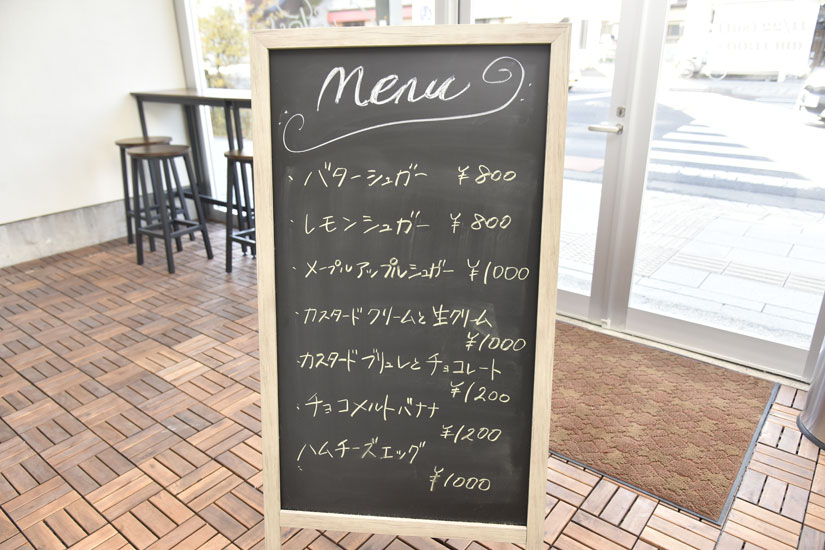 menu
・バターシュガー ¥800
・レモンシュガー ¥800
・メープルアップルシュガー ¥1000
・カスタードクリームと生クリーム
¥1000
・カスタードブリュレとチョコレート
¥1200
・チョコメルトバナナ
¥1200
ハムチーズエッグ
¥1000